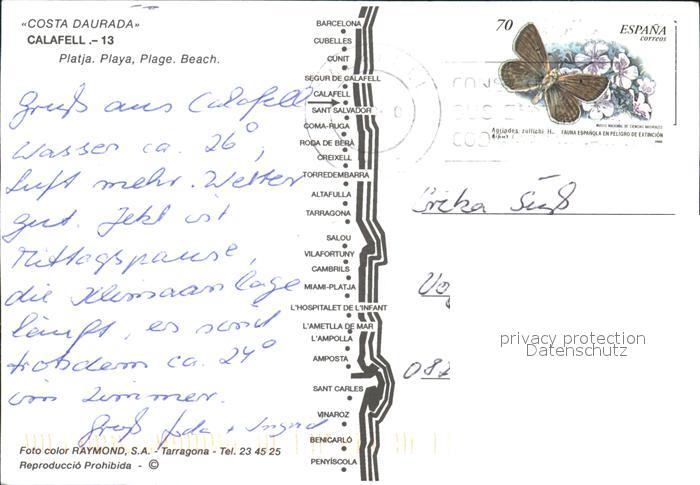 «COSTA DAURADA»
CALAFELL .– 13
Platja. Playa, Plage. Beach.
Gruß aus Calafell
Wasser ca. 26°,
Luft mehr. Wetter
gut. Jetzt ist
Mittagspause,
die Klimaanlage
läuft, es sind
trotzdem ca. 24°
im Zimmer.
Gruß + Ingrid
Foto color RAYMOND, S.A. - Tarragona - Tel. 23 45 25
Reproducció Prohibida - ©
BARCELONA
CUBELLES
CÚNIT
SEGUR DE CALAFELL
CALAFELL
SANT SALVADOR
COMA-RUGA
RODA DE BERÀ
CREIXELL
TORREDEMBARRA
ALTAFULLA
TARRAGONA
SALOU
VILAFORTUNY
CAMBRILS
MIAMI-PLATJA
L'HOSPITALET DE L'INFANT
L'AMETLLA DE MAR
L'AMPOLLA
AMPOSTA
SANT CARLES
VINAROZ
BENICARLÓ
PENYÍSCOLA
70
ESPAÑA
correos
MUSEO NACIONAL DE CIENCIAS NATURALES
Agriades zullichi H. FAUNA ESPAÑOLA EN PELIGRO DE EXTINCIÓN
2000
Erika Süß
privacy protection
Datenschutz